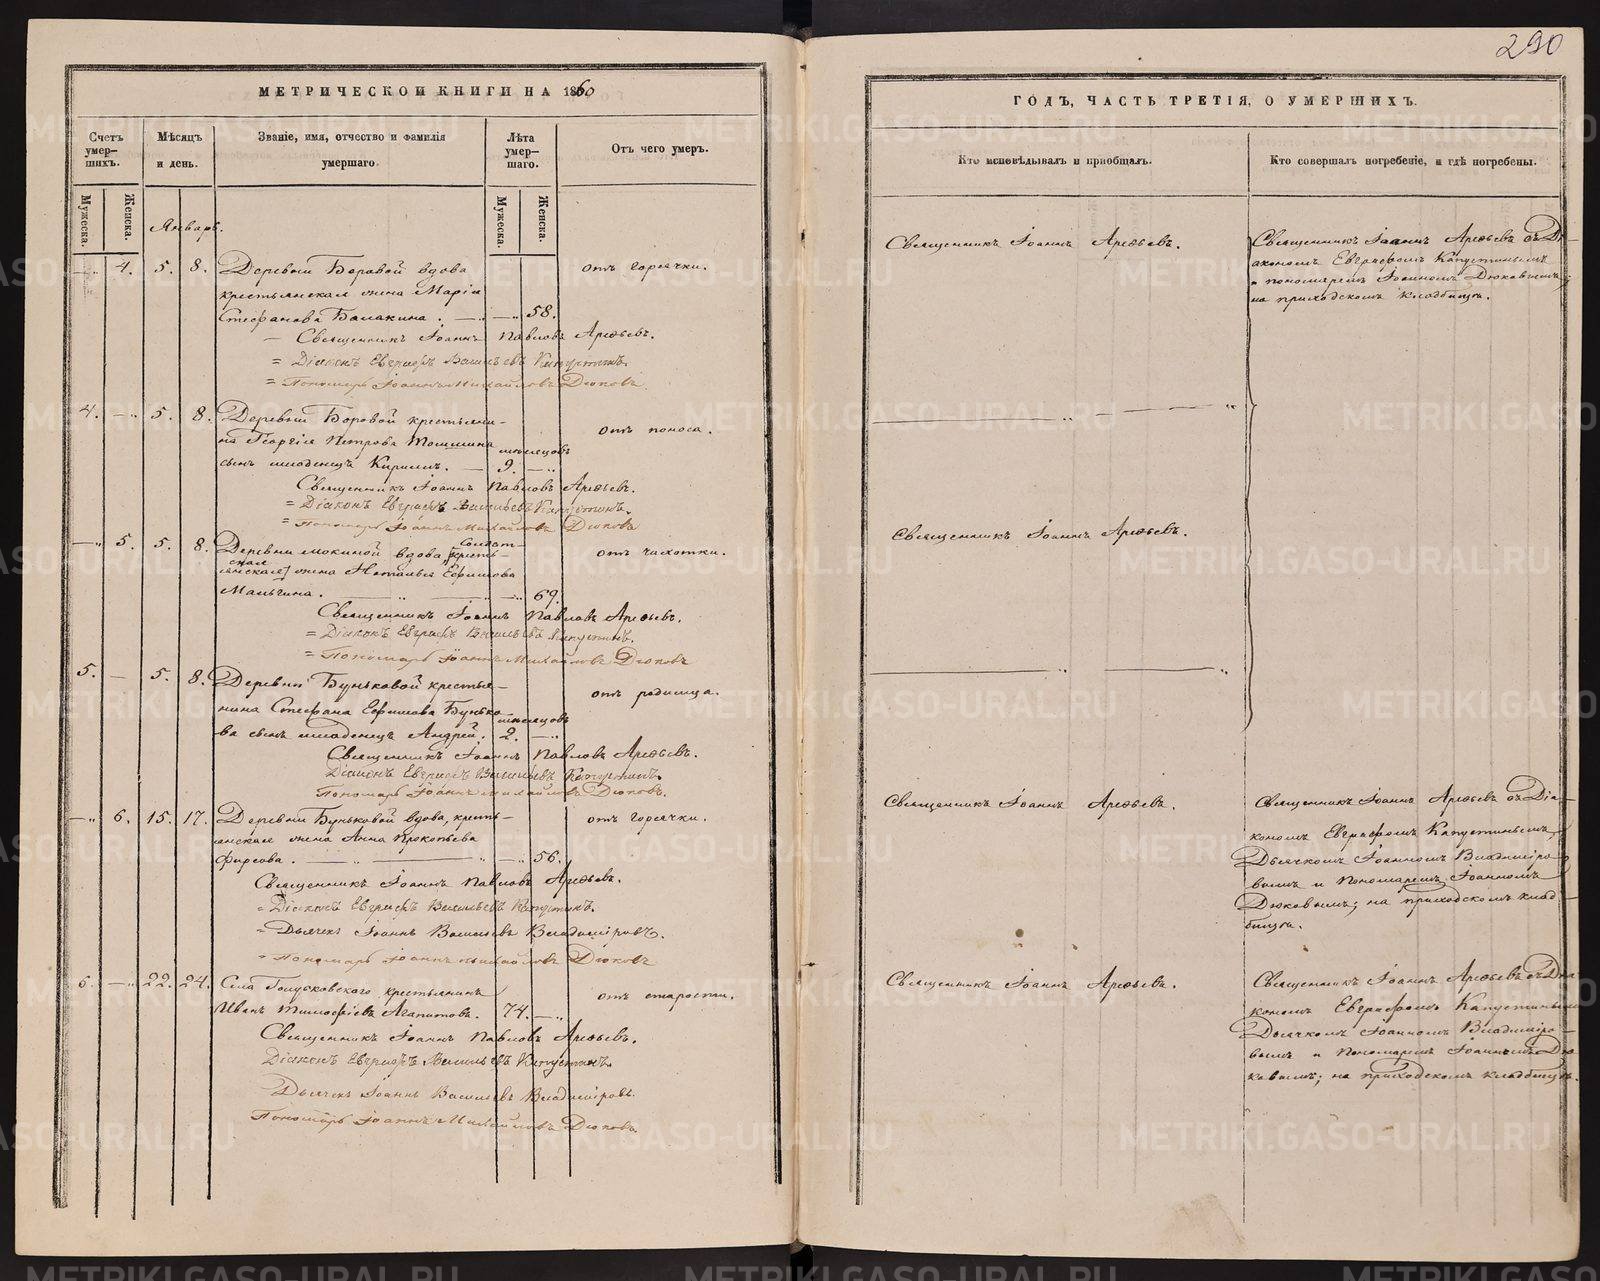 290
МЕТРИЧЕСКОЙ КНИГИ НА 1860
Счетъ умер-шихъ.
Мѣсяцъ и день.
Званіе, имя, отчество и фамилія умершаго.
Лѣта умер-шаго.
Отъ чего умеръ.
Мужеска.
Женска.
Мужеска.
Женска.
Январь.
4. 5. 8. Деревни Боровой вдова
отъ горячки.
крестьянская жена Марія
Стефанова Балакина. 58.
Священникъ Іоаннъ Павловъ Арефьевъ.
= Діаконъ Евграфъ Васильевъ Капустинъ.
= Пономарь Іоаннъ Михайловъ Дюковъ.
4. 5. 8. Деревни Боровой крестьяни-
отъ поноса.
на Георгія Петрова
мѣсяцовъ
сынъ младенецъ Кириллъ. 9.
Священникъ Іоаннъ Павловъ Арефьевъ.
= Діаконъ Евграфъ Васильевъ Капустинъ.
= Пономарь Іоаннъ Михайловъ Дюковъ
солдат-
5. 5. 8. Деревни Мокиной вдова [кресть-
отъ чахотки.
ская
янская] жена Наталья Ефимова
Мальгина. 69.
Священникъ Іоаннъ Павловъ Арефьевъ.
= Діаконъ Евграфъ Васильевъ Капустинъ.
= Пономарь Іоаннъ Михайловъ Дюковъ
5. 5. 8. Деревни Буньковой крестья-
отъ родимца.
нина Стефана Ефимова Бунько-
мѣсяцовъ
ва сынъ младенецъ Андрей. 2.
Священникъ Іоаннъ Павловъ Арефьевъ.
Діаконъ Евграфъ Васильевъ Капустинъ.
Пономарь Іоаннъ Михайловъ Дюковъ.
6. 15. 17. Деревни Буньковой вдова, кресть-
отъ горячки.
янская жена Анна Прокопьева
Фирсова. 56.
Священникъ Іоаннъ Павловъ Арефьевъ.
= Діаконъ Евграфъ Васильевъ Капустинъ.
= Дьячекъ Іоаннъ Васильевъ Владиміровъ.
= Пономарь Іоаннъ Михайловъ Дюковъ
6. 22. 24. Села крестьянинъ
отъ старости.
Иванъ Тимофѣевъ Агапитовъ. 74.
Священникъ Іоаннъ Павловъ Арефьевъ.
Діаконъ Евграфъ Васильевъ Капустинъ.
Дьячекъ Іоаннъ Васильевъ Владиміровъ.
Пономарь Іоаннъ Михайловъ Дюковъ
ГОДЪ, ЧАСТЬ ТРЕТІЯ, О УМЕРШИХЪ.
Кто исповѣдывалъ и пріобщалъ.
Кто совершалъ погребеніе, и гдѣ погребены.
Священникъ Іоаннъ Арефьевъ.
Священникъ Іоаннъ Арефьевъ съ Ді-
акономъ Евграфомъ Капустинымъ
и пономаремъ Іоанномъ Дюковымъ;
на приходскомъ кладбищѣ.
Священникъ Іоаннъ Арефьевъ.
Священникъ Іоаннъ Арефьевъ.
Священникъ Іоаннъ Арефьевъ съ Діа-
кономъ Евграфомъ Капустинымъ,
Дьячкомъ Іоанномъ Владиміро-
вымъ и Пономаремъ Іоанномъ
Дюковымъ; на приходскомъ клад-
бищѣ.
Священникъ Іоаннъ Арефьевъ.
Священникъ Іоаннъ Арефьевъ съ Діа-
кономъ Евграфомъ Капустинымъ
Дьячкомъ Іоанномъ Владиміро-
вымъ и Пономаремъ Іоанномъ Дю-
ковымъ; на приходскомъ кладбищѣ.
METRIKI.GASO-URAL.RU